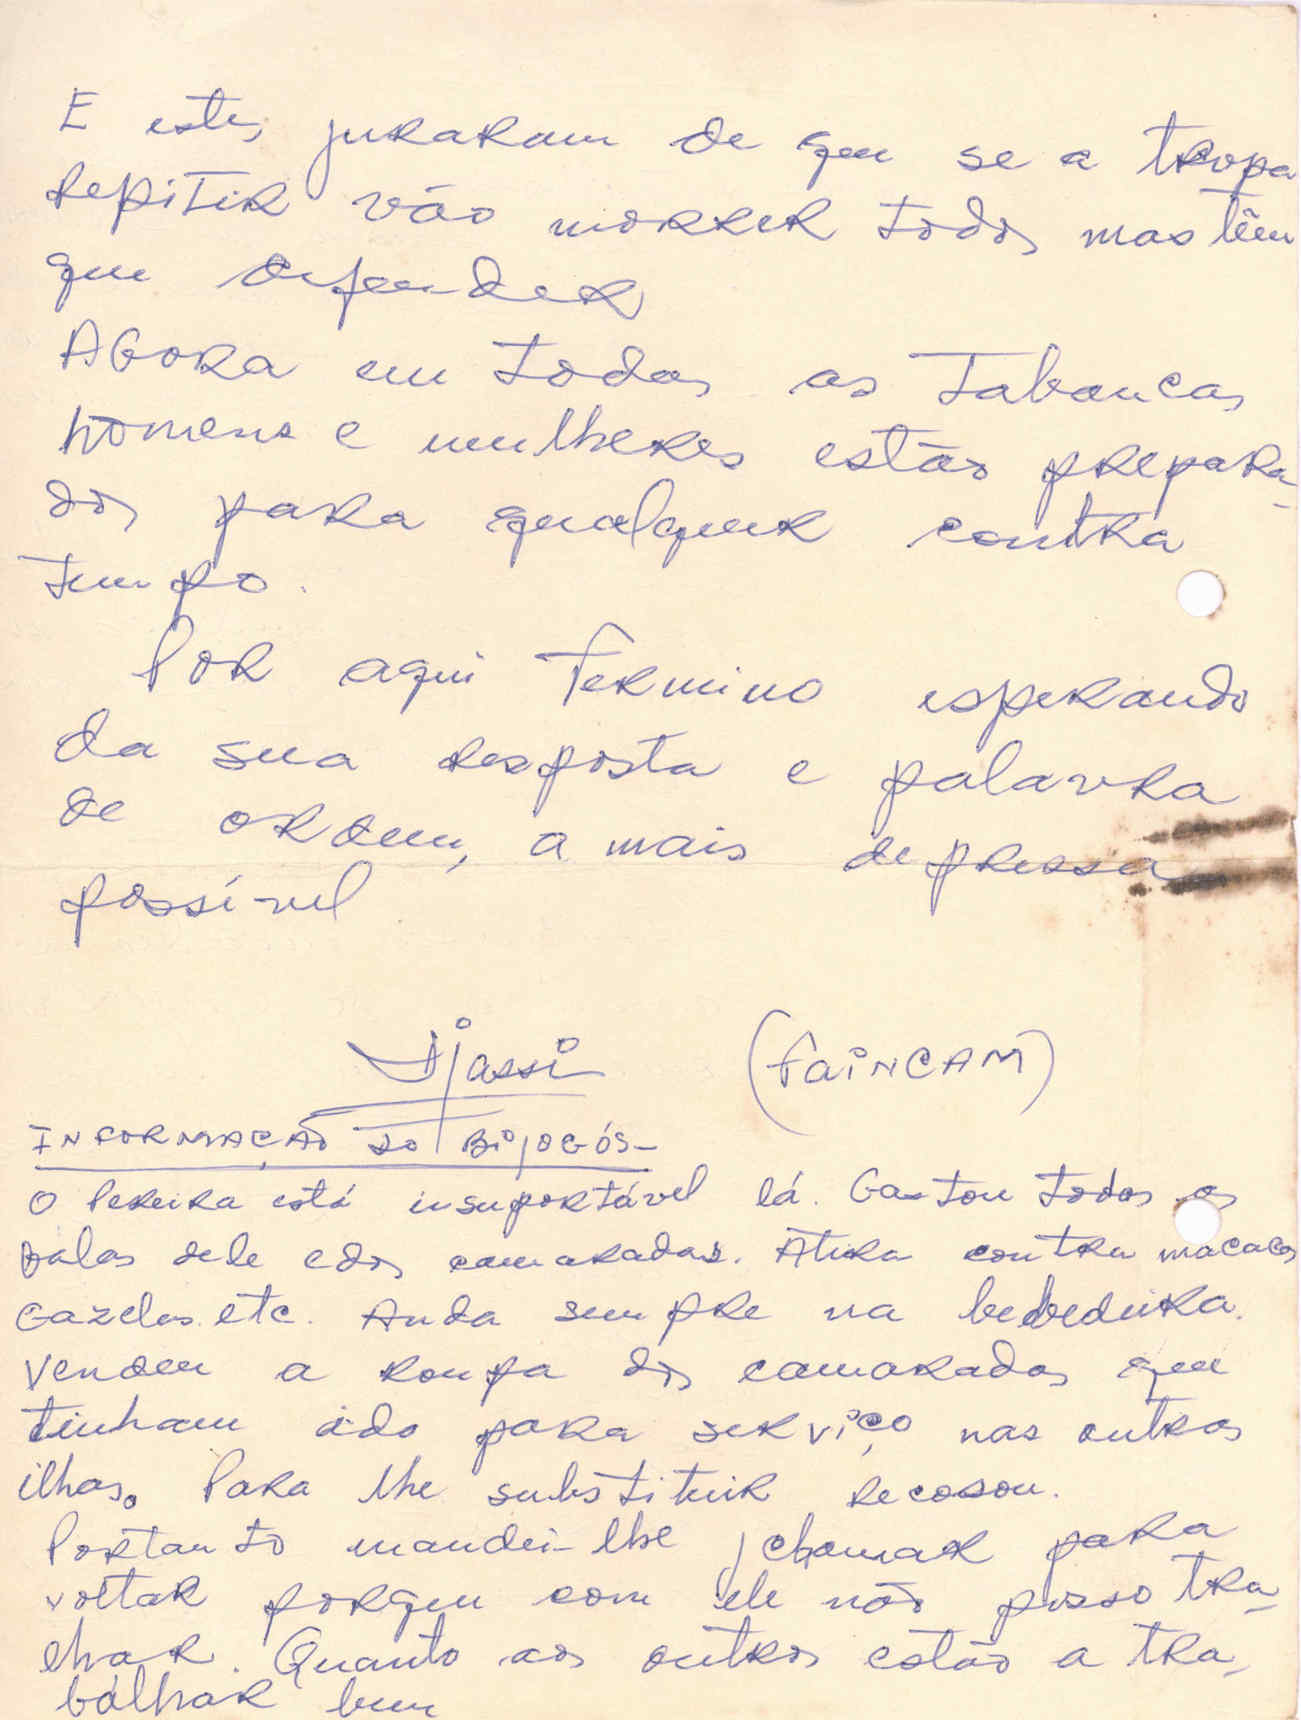 E estes juraram de que se a tropa
repitir vão morrer todos mas têm
que defender
Agora em todas as tabancas
homens e mulheres estão prepara-
dos para qualquer contra
tempo.
Por aqui termino esperando
da sua resposta e palavra
de ordem, a mais depressa
possível
Djassi (FAINCAM)
INFORMAÇÃO DO BijOGÓS-
O Pereira está insuportável lá. Gastou todas as
balas dele e dos camaradas. Atira contra macacos
gazelas. etc. Anda sempre na bebedeira.
Vendeu a roupa dos camaradas que
tinham ido para serviço nas outras
ilhas. Para lhe substituir recosou.
Portanto mandei-lhe chamar para
voltar porque com ele não posso tra-
lhar. Quanto aos outros estão a tra-
balhar bem